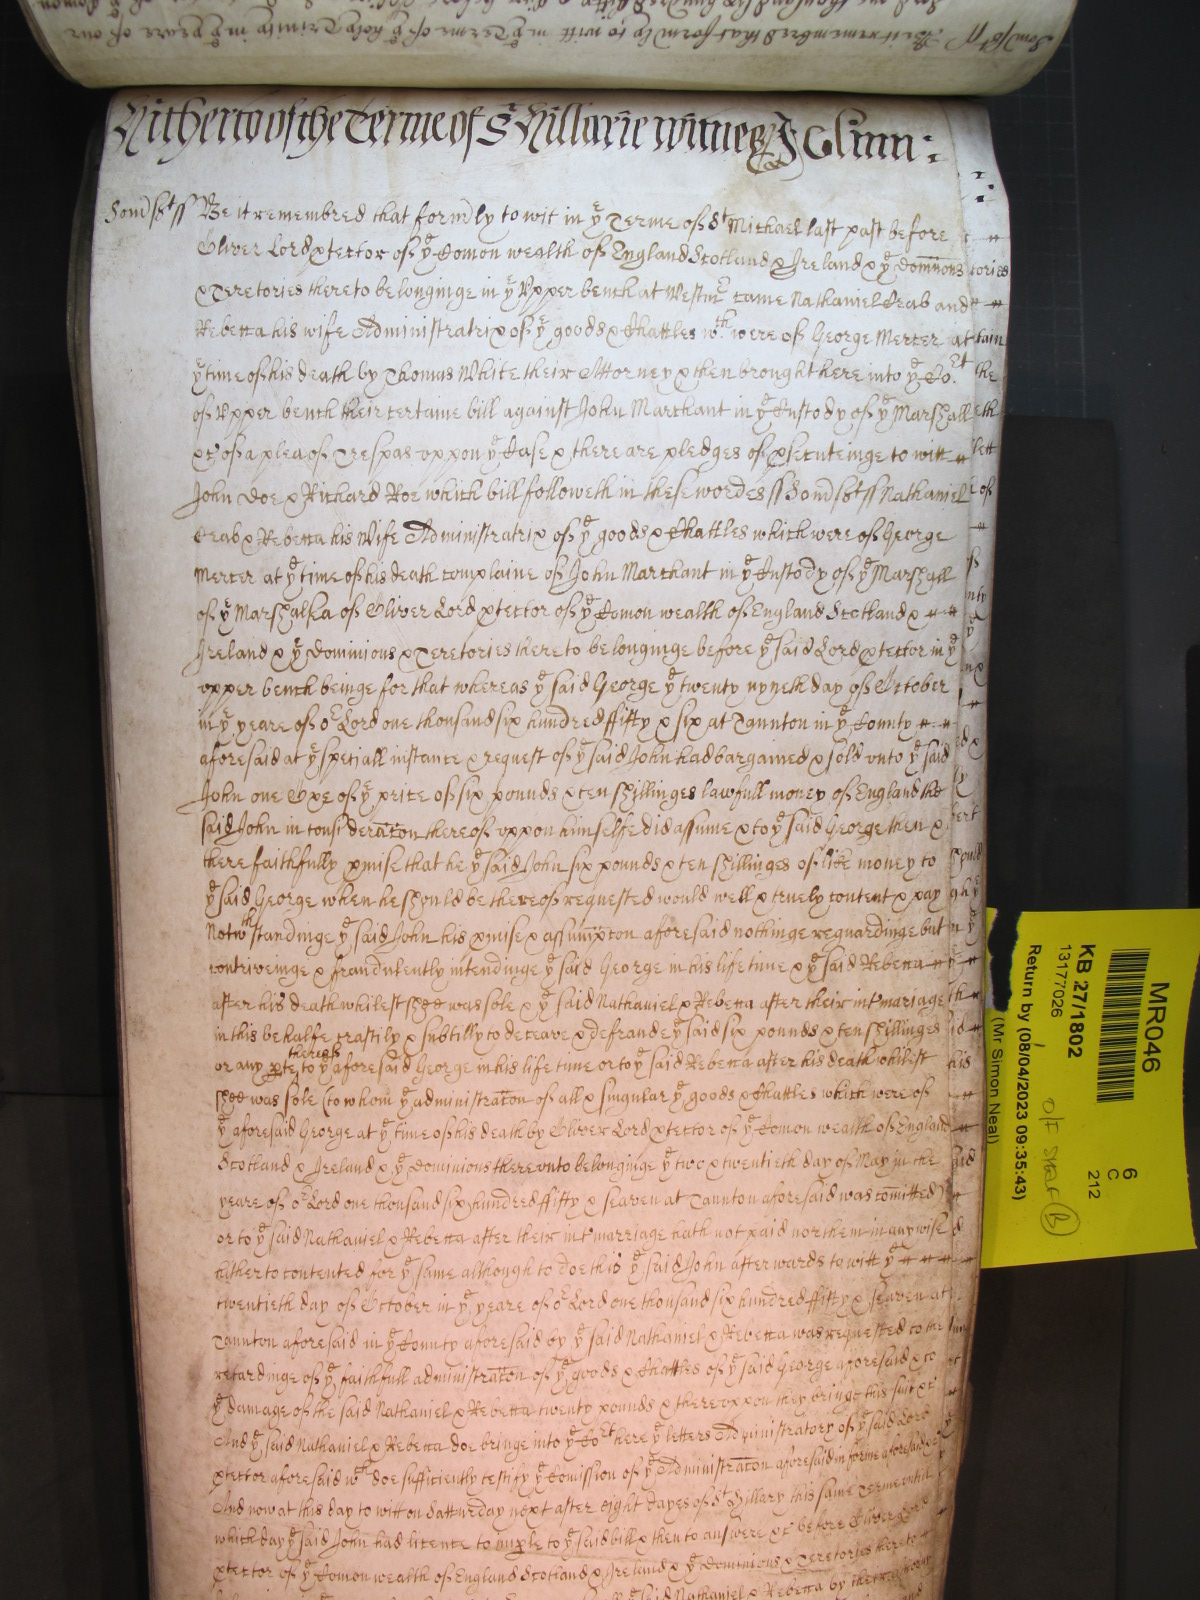 Hitherto of the Terme of St Hillarie witnes J Glinn:
Somsett ss Be it remembred that formly to wit in ye Terme of St Michael last past before
Oliver Lord ptector of ye Comon wealth of England Scotland & Ireland & ye Domnons
& Teretories thereto belonginge in ye Vpper bench at Westmr came Nathaniel Ceab and
Rebecca his wife Administratrix of ye goods & Chattles wch were of George Mercer at
ye time of his death by Thomas White their Attorney & then brought here into ye Cort
of Vpper bench their certaine bill against John Marchant in ye Custody of ye Marshall
&c of a plea of Trespas vppon ye Case & there are pledges of psecuteinge to witt
John Doe & Richard Roe which bill followeth in these wordes ss Somsett ss Nathaniel
Ceab & Rebecca his Wife Administratrix of ye goods & Chattles which were of George
Mercer at ye time of his death complaine of John Marchant in ye Custody of ye Marshall
of ye Marshalsea of Oliver Lord ptector of ye Comon wealth of England Scotland &
Ireland & ye Dominions & Teretories thereto belonginge before ye said Lord ptector in ye
vpper bench beinge for that whereas ye said George ye twenty nyneth day of October
in ye yeare of or Lord one thousand six hundred fifty & six at Taunton in ye County
aforesaid at ye speciall instance & request of ye said John had bargained & sold vnto ye said
John one Oxe of ye price of six pounds & ten shillinges lawfull money of England the
said John in consideracon thereof vppon himselfe did assume & to ye said George then &
there faithfully pmise that he ye said John six pounds & ten shillinges of like money to
ye said George when he should be thereof requested would well & truely content & pay
Notwthstandinge ye said John his pmise & assumpcon aforesaid nothinge reguardinge but
contriveinge & fraudulently intendinge ye said George in his life time & ye said Rebecca
after his death whilest shee was sole & ye said Nathaniel & Rebecca after their intmariage
in this behalfe craftily & subtilly to deceave & defraude ye said six pounds & ten shillinges
or any pte thereof to ye aforesaid George in his life time or to ye said Rebecca after his death whilest
shee was sole (to whom ye administracon of all & singular ye goods & Chattles which were of
ye aforesaid George at ye time of his death by Oliver Lord ptector of ye Comon wealth of England
Scotland & Ireland & ye Dominions therevnto belonginge ye two & twentieth day of May in the
yeare of or Lord one thousand six hundred fifty & seaven at Taunton aforesaid was comitted)
or to ye said Nathaniel & Rebecca after their intmarriage hath not paid nor them in anywise
hitherto contented for ye same although to doe this ye said John afterwards to witt ye
twentieth day of October in ye yeare of or Lord one thousand six hundred fifty & seaven at
Taunton aforesaid in ye County aforesaid by ye said Nathaniel & Rebecca was requested to the
retardinge of ye faithfull administracon of ye goods & Chattles of ye said George aforesaid & to
ye damage of the said Nathaniel & Rebecca twenty pounds & therevppon they bringe this suit &c
And ye said Nathaniel & Rebecca doe bringe into ye Cort here ye letters Administratory of ye said Lord
ptector aforesaid wch doe sufficiently testify ye Comission of ye Administracon aforesaid in forme aforesaid &c
And now at this day to witt on Satturday next after eight dayes of St Hillary this same Terme vntil
which day ye said John had licence to imple to ye said bill & then to answere &c before Oliver Lord
ptector of ye Comon wealth of England Scotland & Ireland & ye Dominions & Teretories thereto
MR046
KB 27/1802
13177026
Return by (08/04/2023 09:35:43)
(Mr Simon Neal)
6
C
212
O/F SHELF B